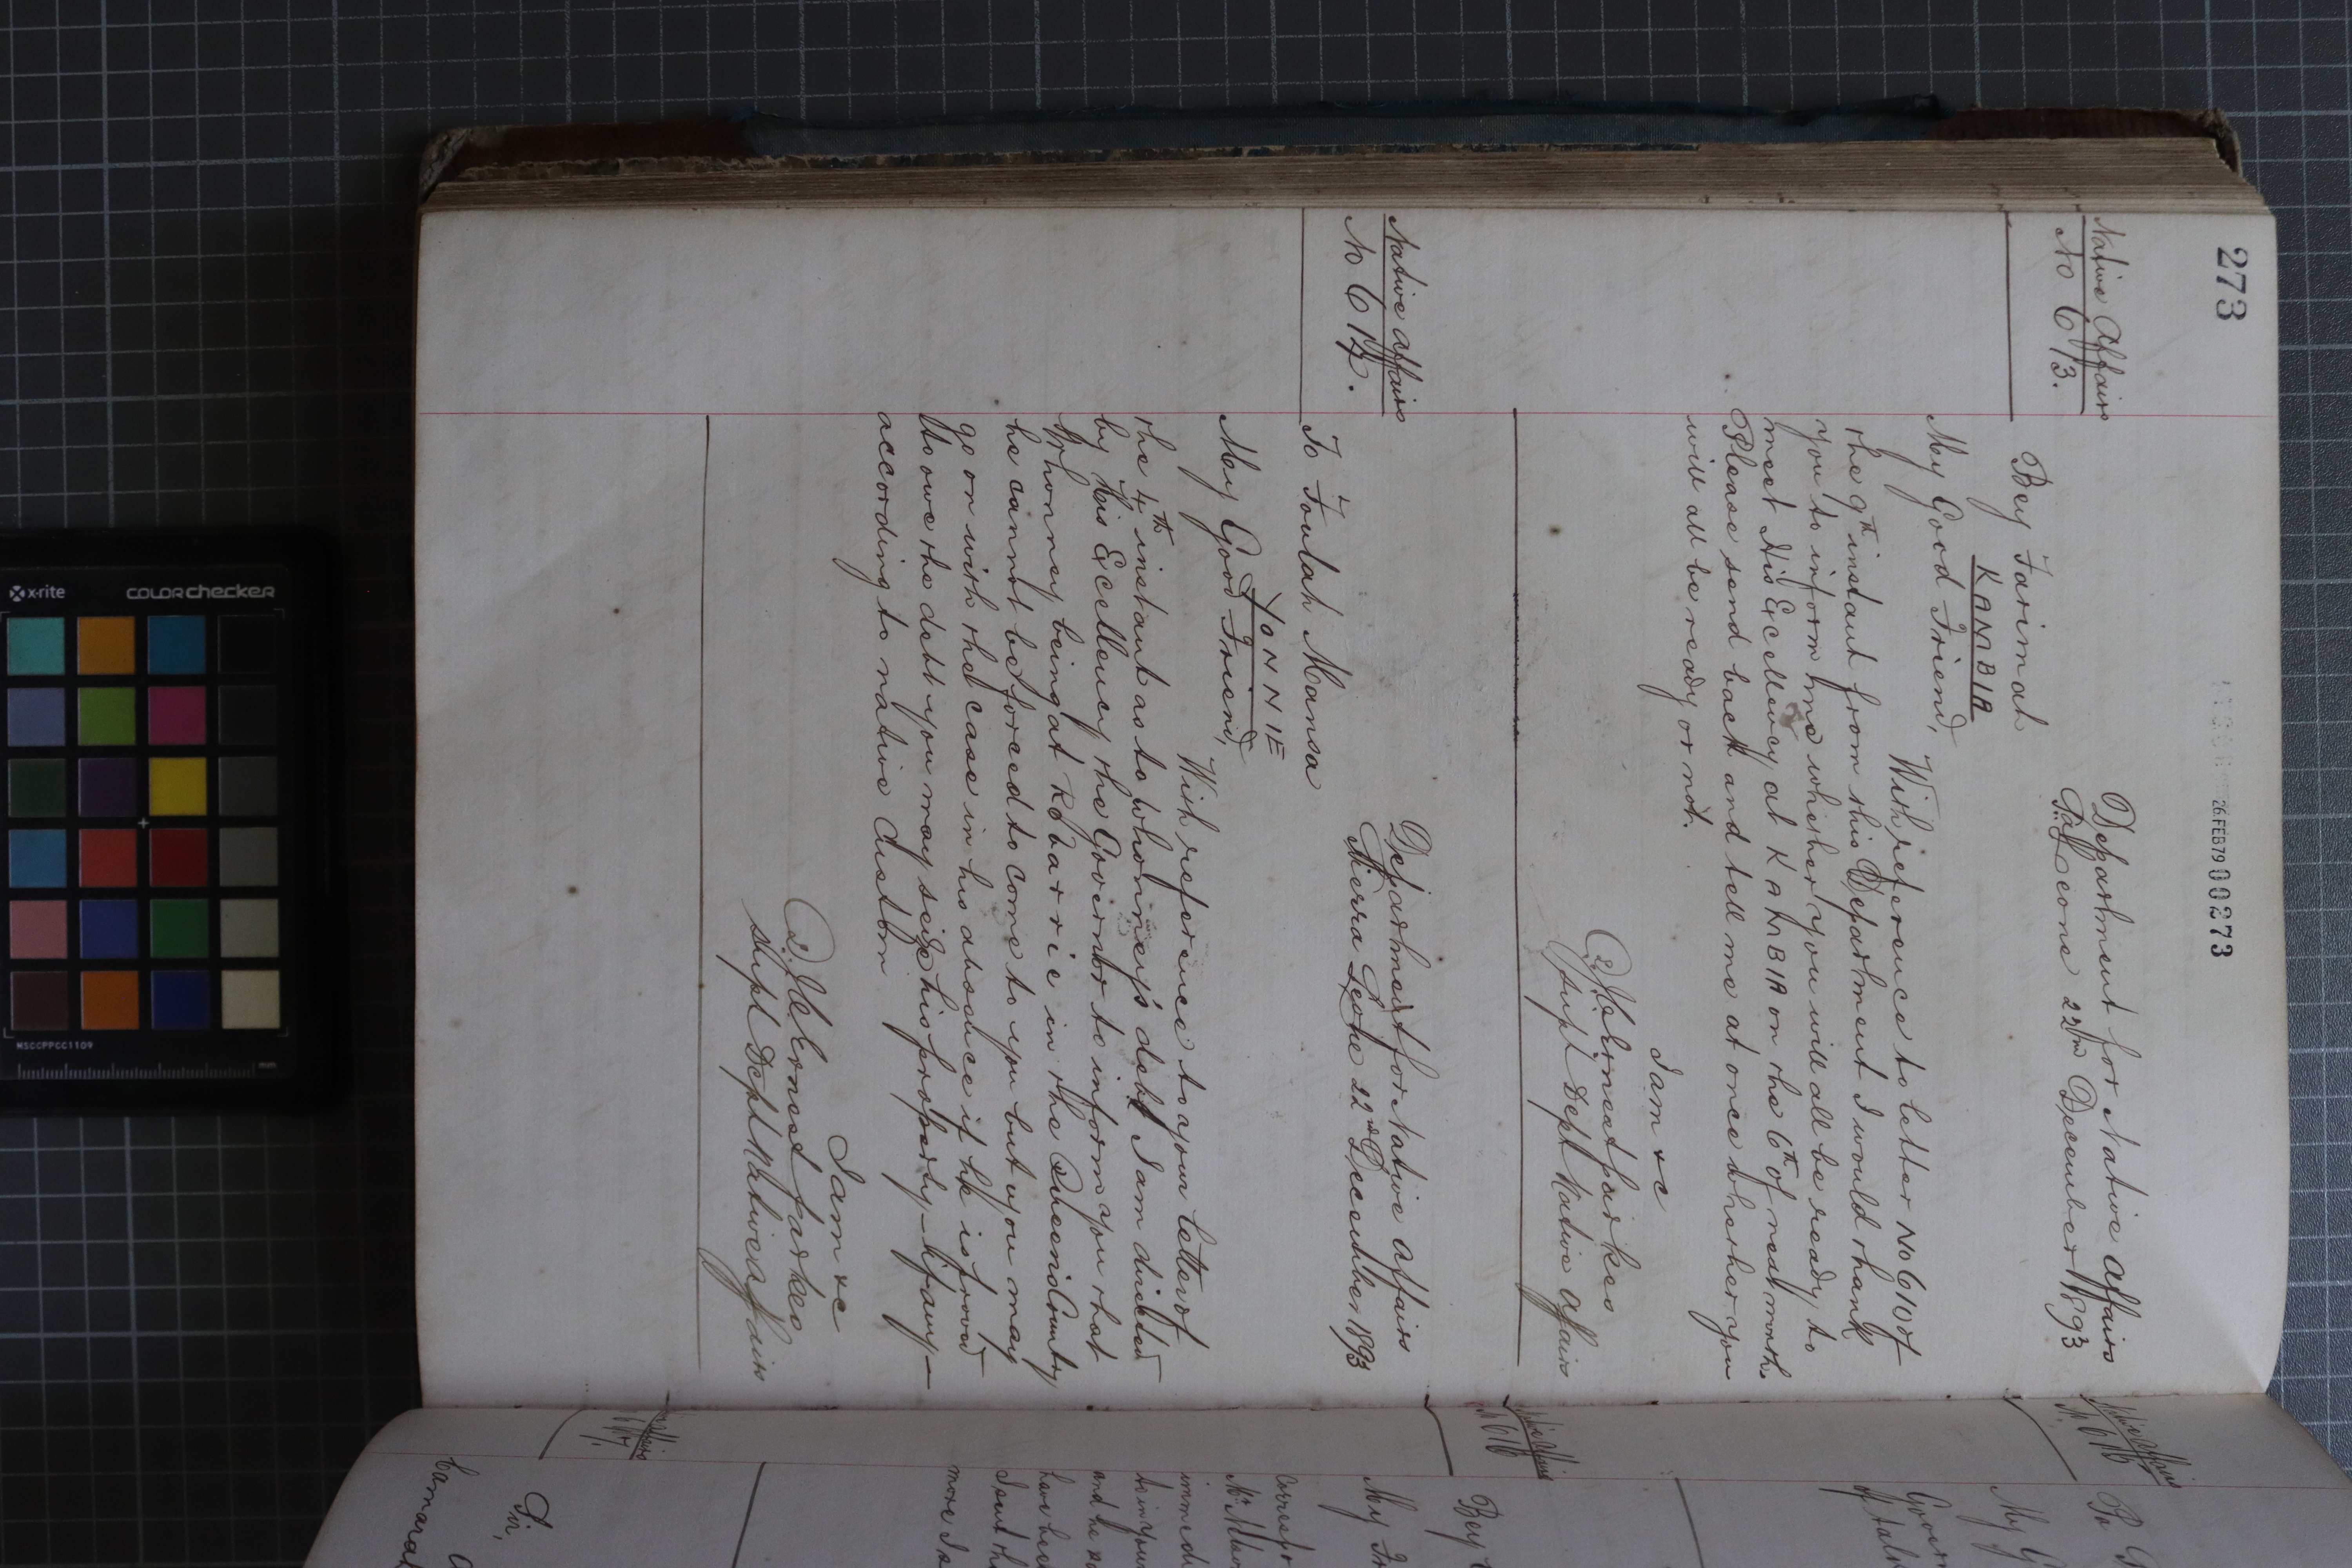 273
26 FEB 79 00273
Native Affairs
No 613.
Department for Native Affairs
S. Leone 22nd December 1893
Bey Farimah
KAMBIA
My Good Friend,
With reference to letter No 610 of
the 9th instant from this Department I would thank
you to inform me whether you will all be ready to
meet His Excellency at KAMBIA on the 6th of next month
Please send back and tell me at once whether you
will all be ready or not.
I am &c
Parkes
Supt Dept Native Affairs
Native Affairs
No 614.
Department for Native Affairs
Sierra Leone 22nd December 1893
To Foulah Mansa
YONNIE
My Good Friend,
With reference to your letter of
the 4th instant as to Whonney's debt I am directed
by His Excellency the Governor to inform you that
Whonney being at Robarrie in the Country
he cannot be forced to come to you but you may
go on with the case in his absence if he is proved
to owe the debt you may seize his property - if any -
according to native custom
I am &c
Parkes
Supt Dept Native Affairs
Native Affairs
My
Govern
Native Affairs
No 616
Bey
My Fr
immedi
and he
have bee
I sent th
more I a
Affairs
Sir,